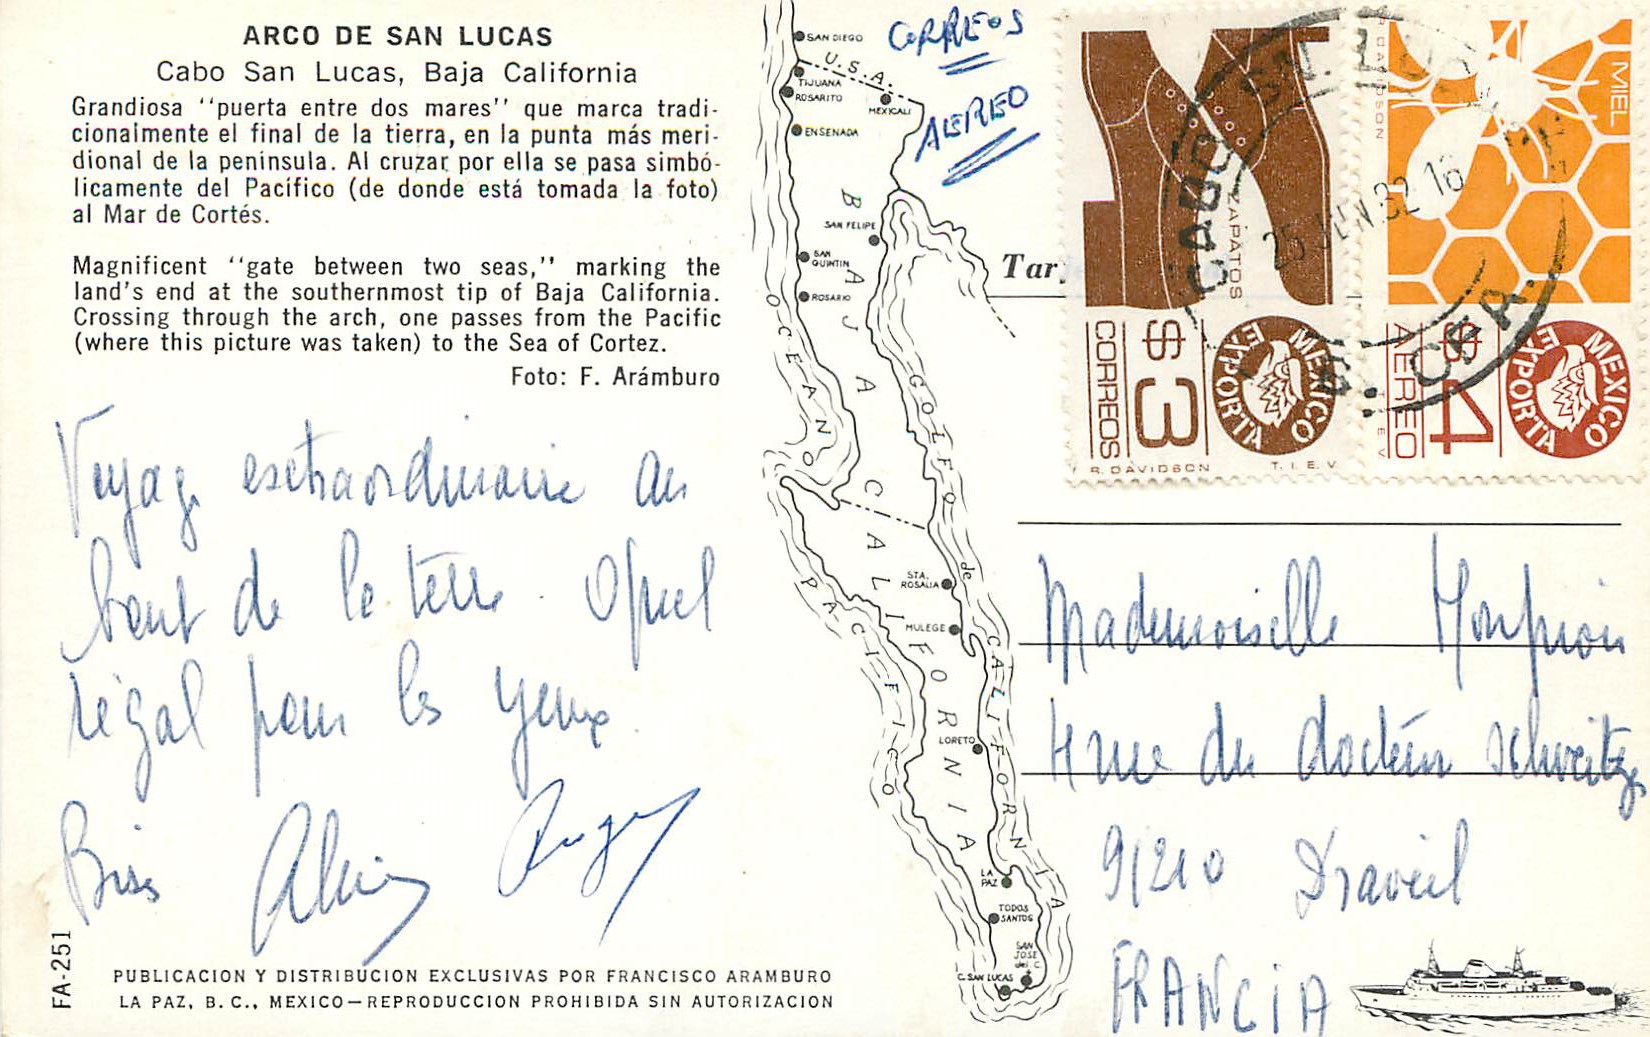 ARCO DE SAN LUCAS
Cabo San Lucas, Baja California
Grandiosa "puerta entre dos mares" que marca tradi-
cionalmente el final de la tierra, en la punta más meri-
dional de la peninsula. Al cruzar por ella se pasa simbó-
licamente del Pacífico (de donde está tomada la foto)
al Mar de Cortés.
Magnificent "gate between two seas," marking the
land's end at the southernmost tip of Baja California.
Crossing through the arch, one passes from the Pacific
(where this picture was taken) to the Sea of Cortez.
Foto: F. Arámburo
Voyage extraordinaire au
bout de la terre. Quel
régal pour les yeux.
Bises
FA-251
PUBLICACION Y DISTRIBUCION EXCLUSIVAS POR FRANCISCO ARAMBURO
LA PAZ, B. C., MEXICO—REPRODUCCION PROHIBIDA SIN AUTORIZACION
SAN DIEGO
U.S.A.
TIJUANA
ROSARITO
MEXICALI
ENSENADA
SAN FELIPE
SAN
QUINTIN
ROSARIO
BAJA CALIFORNIA
OCEANO PACIFICO
GOLFO de CALIFORNIA
STA.
ROSALIA
MULEGE
LORETO
LA
PAZ
TODOS
SANTOS
SAN
JOSE
del C.
C. SAN LUCAS
CORREOS
AEREO
Tar
ZAPATOS
$3
CORREOS
MEXICO EXPORTA
R. DAVIDSON T.I.E.V.
MIEL
$4
AEREO
MEXICO EXPORTA
CABO SN. LUCAS
25 JUN 82 16
Mademoiselle
4 rue du docteur Schweitzer
91210 Draveil
FRANCIA